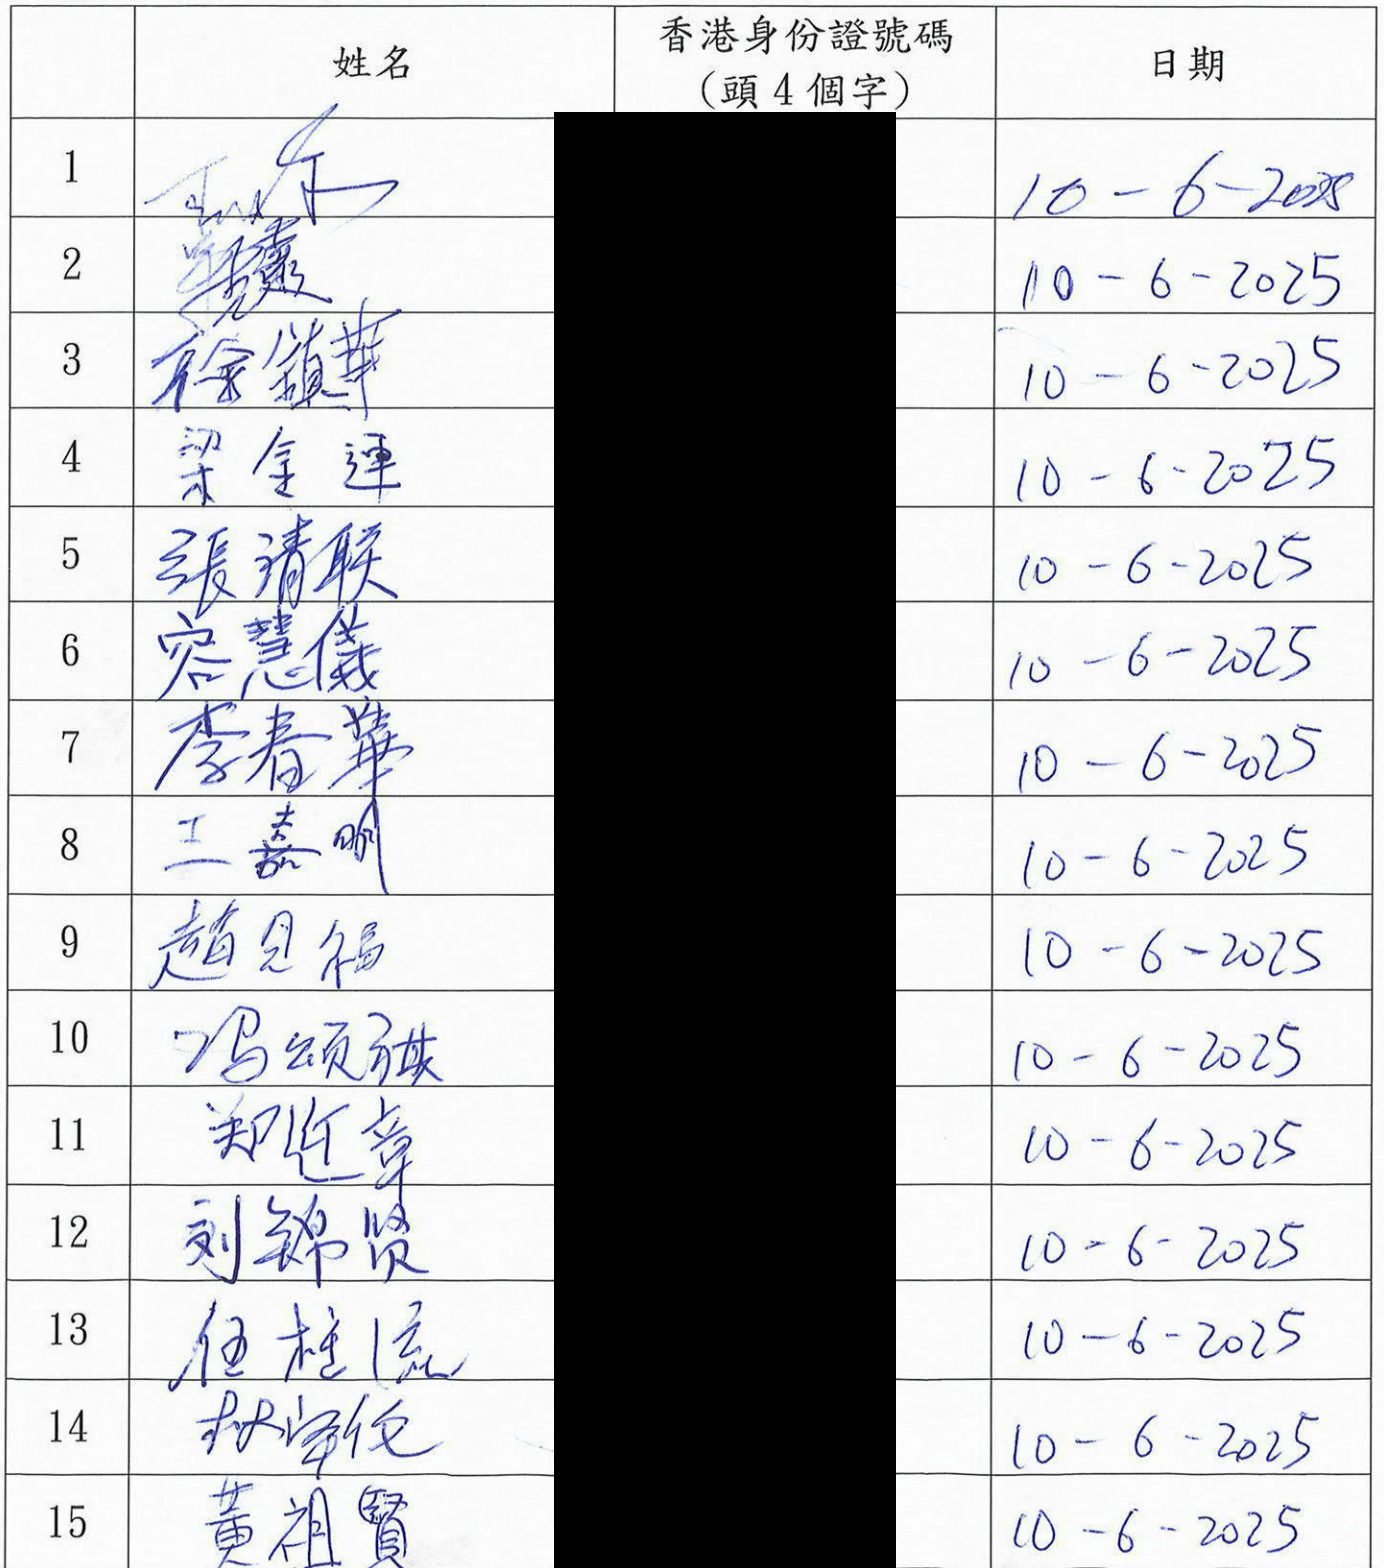 姓名 香港身份證號碼 (頭4個字) 日期
1 10-6-2025
2 10-6-2025
3 徐嶺華 10-6-2025
4 梁金運 10-6-2025
5 張清联 10-6-2025
6 容慧儀 10-6-2025
7 李春華 10-6-2025
8 王嘉明 10-6-2025
9 趙見福 10-6-2025
10 冯頌祺 10-6-2025
11 郑近章 10-6-2025
12 刘錦贤 10-6-2025
13 伍柱流 10-6-2025
14 10-6-2025
15 黃祖賢 10-6-2025